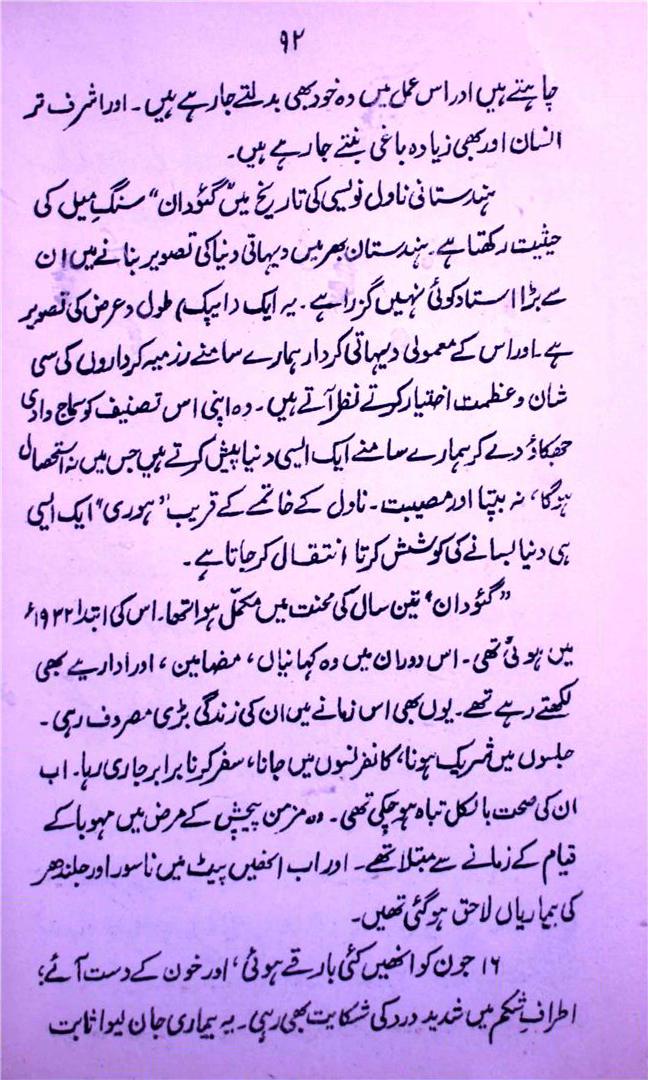 ۹۲
چاہتے ہیں اور اس عمل میں وہ خود بھی بدلتے جا رہے ہیں۔ اور اشرف تر
انسان اور بھی زیادہ باغی بنتے جا رہے ہیں۔
ہندستانی ناول نویسی کی تاریخ میں "گئودان" سنگِ میل کی
حیثیت رکھتا ہے۔ ہندستان بھر میں دیہاتی دنیا کی تصویر بنانے میں ان
سے بڑا استاد کوئی نہیں گزرا ہے۔ یہ ایک (ایپک) طول و عرض کی تصویر
ہے۔ اور اس کے معمولی دیہاتی کردار ہمارے سامنے رزمیہ کرداروں کی سی
شان و عظمت اختیار کرتے نظر آتے ہیں۔ وہ اپنی اس تصنیف کو سماج وادی
جھکاؤ دے کر ہمارے سامنے ایک ایسی دنیا پیش کرتے ہیں جس میں نہ استحصال
ہوگا، نہ بپتا اور مصیبت۔ ناول کے خاتمے کے قریب "ہوری" ایک ایسی
ہی دنیا بسانے کی کوشش کرتا انتقال کر جاتا ہے۔
"گئودان" تین سال کی محنت میں مکمل ہوا تھا۔ اس کی ابتدا ۱۹۳۲ء
میں ہوئی تھی۔ اس دوران میں وہ کہانیاں، مضامین، اور اداریے بھی
لکھتے رہے تھے۔ یوں بھی اس زمانے میں ان کی زندگی بڑی مصروف رہی۔
جلسوں میں شریک ہونا، کانفرنسوں میں جانا، سفر کرنا برابر جاری رہا۔ اب
ان کی صحت بالکل تباہ ہو چکی تھی۔ وہ مزمن پیچش کے مرض میں مہوبا کے
قیام کے زمانے سے مبتلا تھے۔ اور اب انھیں پیٹ میں ناسور اور جلندھر
کی بیماریاں لاحق ہو گئی تھیں۔
۱۶ جون کو انھیں کئی بار قے ہوئی، اور خون کے دست آئے؛
اطرافِ شکم میں شدید درد کی شکایت بھی رہی۔ یہ بیماری جان لیوا ثابت